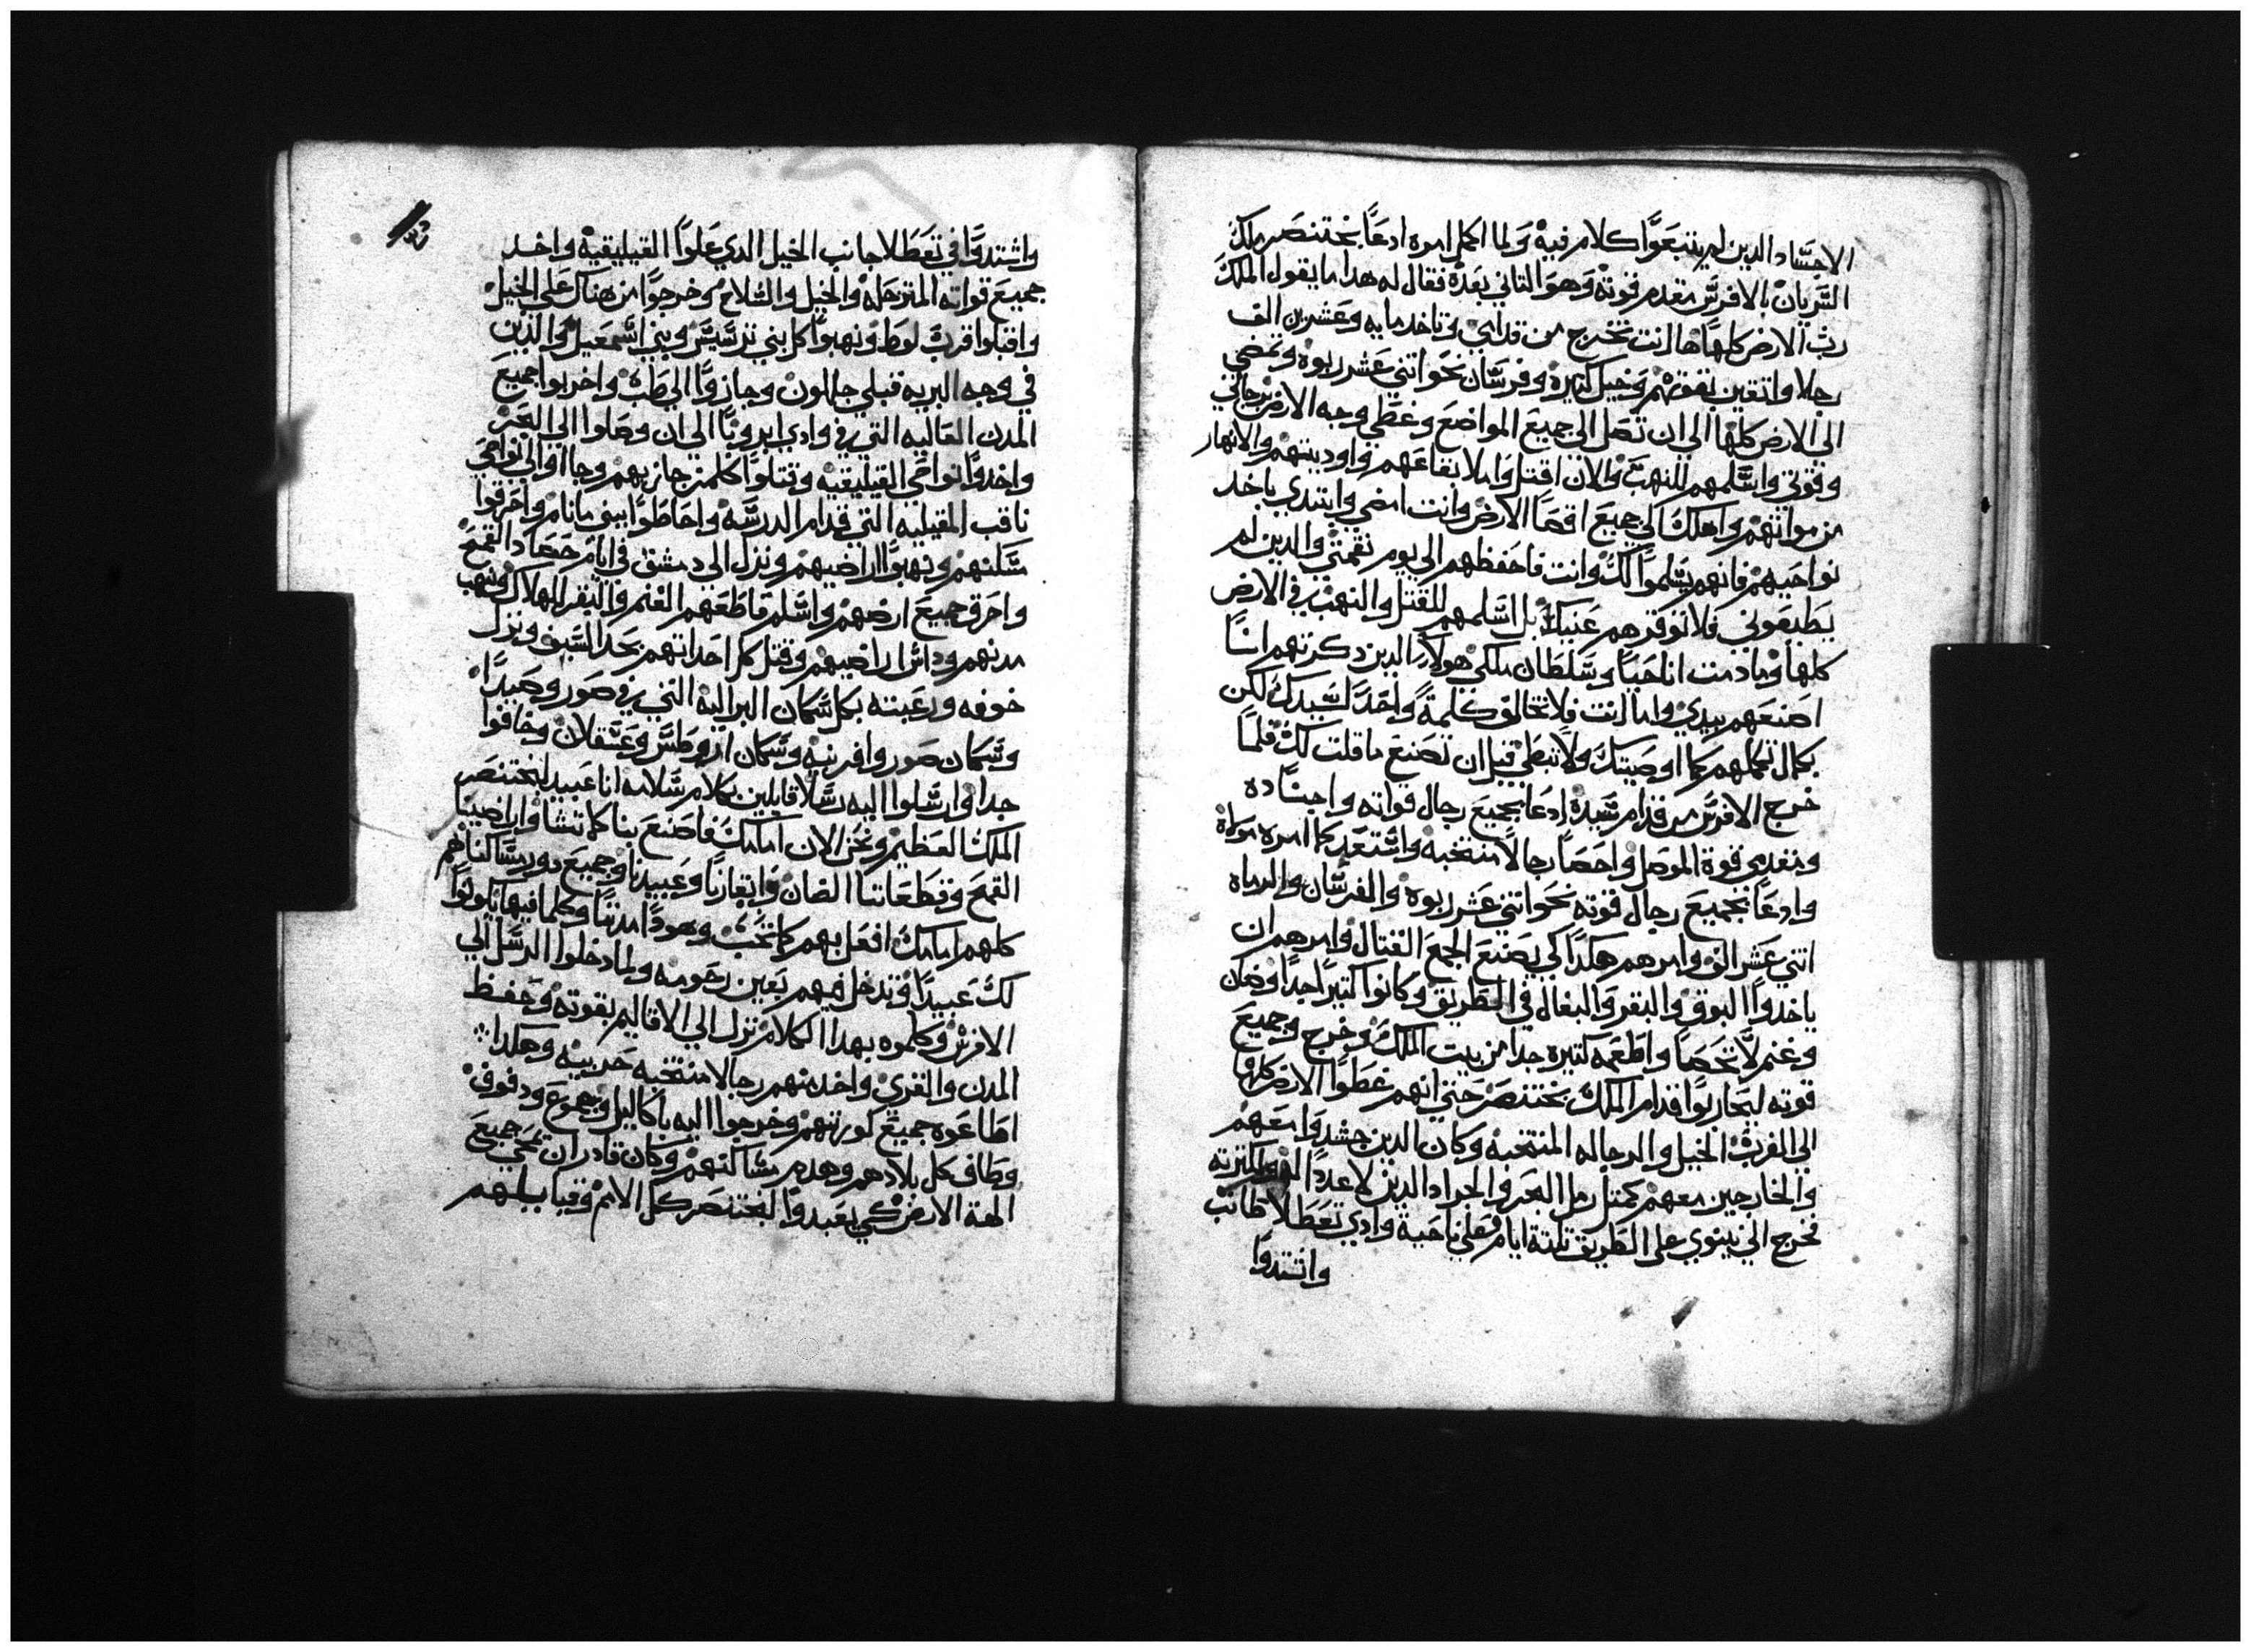 الاجساد الدين لم يتبعوا كلام فيه ولما اكمل امره ادعا بختنصر ملك
السريان بالافرنس مقدم قوته وهو التاني بعده فقال له هدا ما يقول الملك
رب الارض كلها ها انت تخرج من قدامي وتاخد مايه وعشرين الف
رجلا واتقين بقوتهم وخيل كتيره وفرسان نحو اتني عشر ربوه وتمضي
الى الارض كلها الي ان تصل الى جميع المواضع وغطي وجه الارض برجالي
وقوتي واسلمهم للنهب والان اقتل واملا بقاعهم واوديتهم والانهار
من مواتهم واهلك الي جميع اقصا الارض وانت امضي وابتدي باخد
نواحيهم فانهم يسلموا لك وانت فاحفظهم الي يوم نقمتي والدين لم
يطيعوني فلا توقرهم عنياك بل اسلمهم للقتل والنهب في الارض
كلها وما دمت انا حيا وسلطان ملكي هولاء الدين دكرتهم انا
اصنعهم بيدي واما انت فلا تخالف كلمة واحده لسيدك لكن
بكمال تكملهم كما اوصيتك ولا تبطي قبل ان تصنع ما قلت لك فلما
خرج الافرنس من قدام سيده ادعا بجميع رجال قواته واجناده
ومقدمي قوة الموصل واحصا رجالا منتخبه واستعد كما امره مولاه
وادعا بجميع رجال قوته نحو اتني عشر ربوه والفرسان والرماه
اتني عشر الف وامرهم هكدا كي يصنع الجمع القتال وامرهم ان
ياخدوا البوق والبقر والبغال في الطريق وكانوا كتيرا جدا وضان
وغنم لا تحصا واطعمه كتيره جدا من بيت الملك وخرج وجميع
قوته ليحاربوا قدام الملك بختنصر حتي انهم غطوا الارض كلها
الى الغرب الخيل والرجاله المنتخبه وكان الدين حشدوا معهم
والخارجين معهم كمتل رمل البحر والجراد الدين لا عددا لهم لكترته
فخرج الي نينوي على الطريق تلتة ايام فعلي ناحية وادي تعطلا طانب
واشتدوا
واشتدوا في تعطلا جانب الخيل الدي علوا القيليقيه واخد
جميع قواته المترجله والخيل والسلاح وخرجوا من هناك علي الخيل
واقبلوا اقرب لوط ونهبوا كل بني ترسيس وبني اسمعيل والدين
في وجه البريه قبلي حاملون وجازوا الي طب واخربوا جميع
المدن العاليه التي في وادي ابرونا الي ان وصلوا الى البحر
واخدوا نواحي القيليقيه وقتلوا كلمن جاز بهم وجااوا الي نواحي
ناقب المقبليه التي قدام الدرسه واحاطوا ببني مانام واحرقوا
سلنهم ونهبوا اراضيهم ونزل الى دمشق في ايام حصاد القمح
واحرق جميع ارضهم واسلم قاطعهم الغنم والبقر للهلاك ونهب
مدنهم وداس اراضيهم وقتل كل احداتهم بحد السيف ونزل
خوفه ورعبته بكل سكان البراليه التي في صور وصيدا
وسكان صور وافرنيه وسكان ازوطس وعسقلان وخافوا
جدا وارسلوا اليه رسلا قايلين بكلام سلامه انا عبيد لبختنصر
الملك العظيم ونحن الان امامك فاصنع بنا كما تشا واراضينا
القمح وقطعاتنا الضان وابقارنا وعبيدنا وجميع دور مساكنا هم
كلهم امامك افعل بهم كما تحب وهودا مدننا وكلما فيها يكونوا
لك عبيدا وتدخل فيهم بعين رحومه ولما دخلوا الرسل الي
الافرنس وكلموه بهدا الكلام نزل الي الاقاليم بقوته وحفظ
المدن والقري واخد منهم رجالا منتخبه حربيه وهكدا
اطاعوه جميع كورتهم وخرجوا اليه باكاليل وجموع ودفوف
وطاف كل بلادهم وهدم مساكنهم وكان قادر ان يمحي جميع
الهة الارض كي يعبدوا لبختنصر كل الامم وقبايلهم